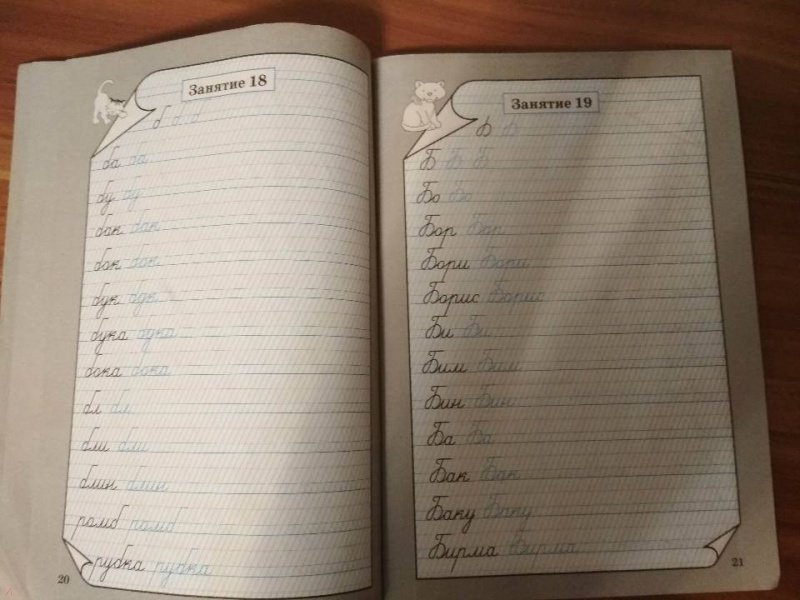 Занятие 18
б б б
ба ба
бу бу
бак бак
бок бок
бук бук
бука бука
бока бока
бл бл
бли бли
блин блин
ромб ромб
рубка рубка
20
Занятие 19
Б Б
Б Б Б
Бо Бо
Бор Бор
Бори Бори
Борис Борис
Би Би
Бим Бим
Бин Бин
Ба Ба
Бак Бак
Баку Баку
Бирма Бирма
21